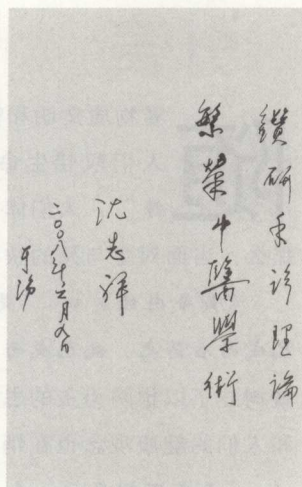 鑽研手診理論
繁榮中醫學術
沈志祥
二〇〇八年二月九日
于京